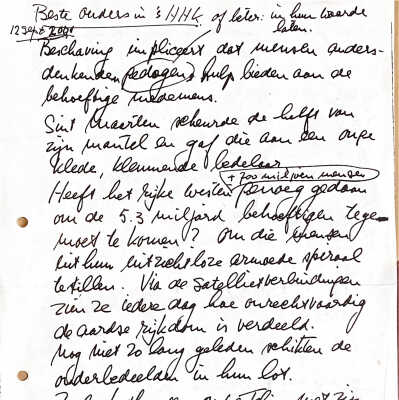 Beste ouders in 's HHK of later: in hun waarde
12 sept 2001 laten.
Beschaving impliceert dat mensen anders-
denkenden gedogen, hulp bieden aan de
behoeftige medemens.
Sint Maarten scheurde de helft van
zijn mantel en gaf die aan een onge
klede, kleumende bedelaar.
+ 700 miljoen mensen
Heeft het rijke westen genoeg gedaan
om de 5.3 miljard behoeftigen tege-
moet te komen? Om die mensen
uit hun uitzichtloze armoede spiraal
te tillen. Via de satellietverbindingen
zien ze iedere dag hoe onrechtvaardig
de aardse rijkdom is verdeeld.
Nog niet zo lang geleden schikten de
onderbedeelden in hun lot.